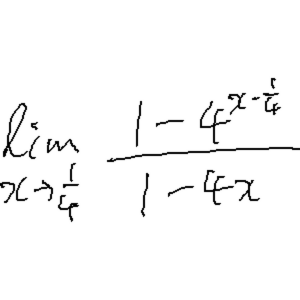 lim x→1/4 (1 - 4^(x - 1/4))/(1 - 4x)